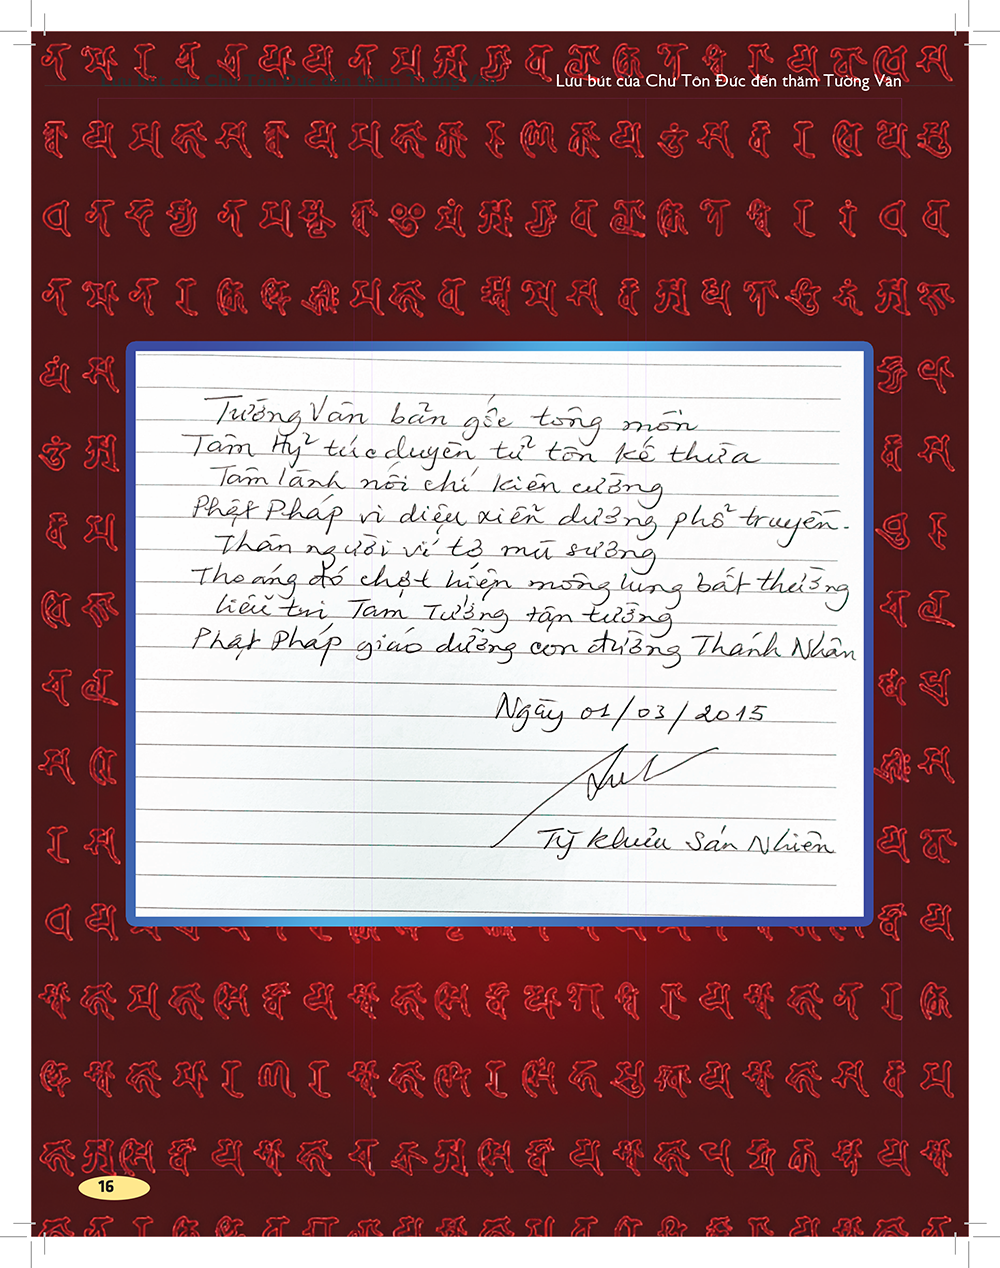 Lưu bút của Chư Tôn Đức đến thăm Tường Vân
Tường Vân bản gốc tông môn
Tâm Hỷ túc duyên tử tôn kế thừa
Tâm lành nối chí kiên cường
Phật Pháp vi diệu xiển dương phổ truyền.
Thân người ví tở mù sương
Thoáng đó chợt hiện mông lung bất thường
liễu tri Tam Tướng tận tường
Phật Pháp giáo dưỡng con đường Thánh Nhân
Ngày 01/03/2015
Tỳ khưu Sán Nhiên
16